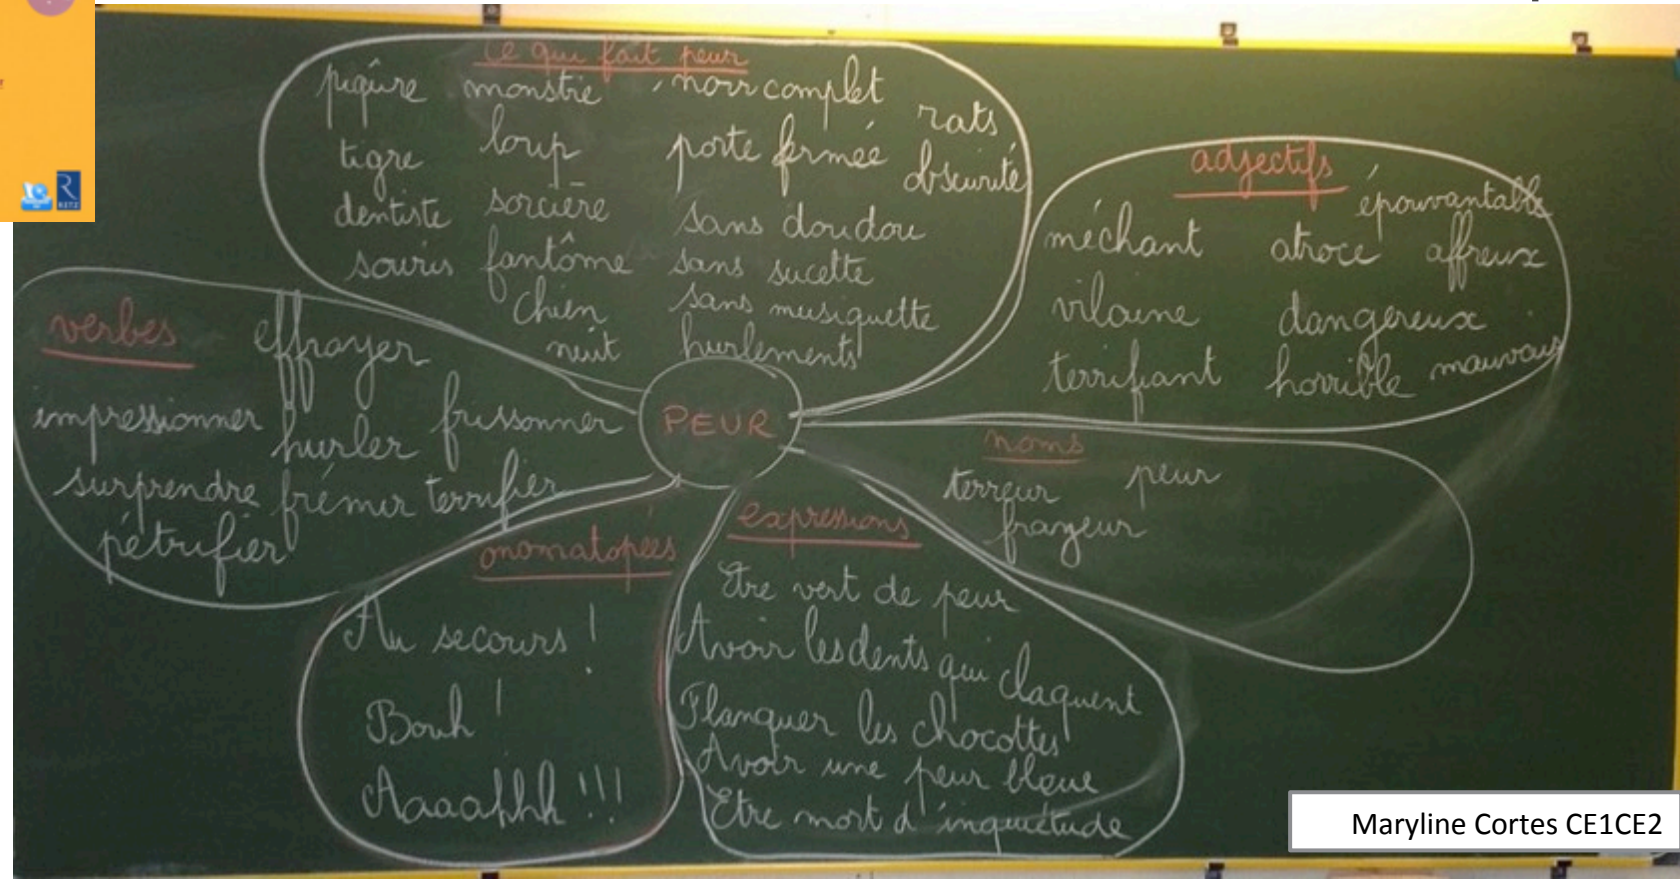 Ce qui fait peur
piqûre monstre noir complet
rats
tigre loup porte fermée obscurité
dentiste sorcière sans doudou
souris fantôme sans sucette
chien sans musiquette
nuit hurlements
adjectifs
épouvantable
méchant atroce affreux
vilaine dangereux
terrifiant horrible mauvais
verbes effrayer
impressionner hurler frissonner
surprendre frémir terrifier
pétrifier
PEUR
noms
terreur peur
frayeur
onomatopées
Au secours !
Bouh !
Aaaahhh !!!
expressions
Etre vert de peur
Avoir les dents qui claquent
Flanquer les chocottes
Avoir une peur bleue
Etre mort d'inquiétude
RETZ
Maryline Cortes CE1CE2